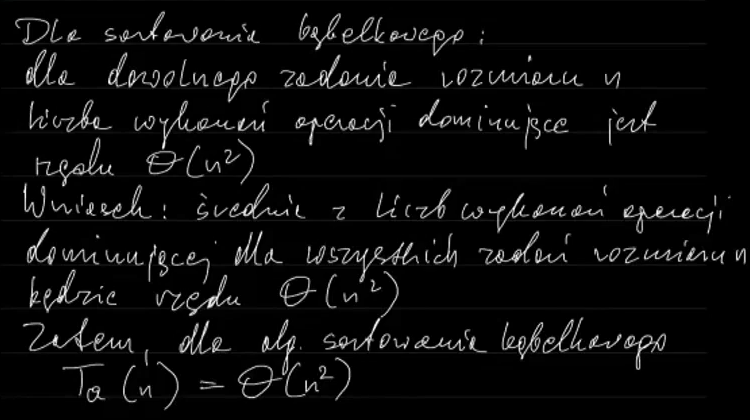 Dla sortowania bąbelkowego:
dla dowolnego zadania rozmiaru n
liczba wykonań operacji dominujące jest
rzędu Θ(n²)
Wniosek: średnia z liczb wykonań operacji
dominującej dla wszystkich zadań rozmiaru n
będzie rzędu Θ(n²)
Zatem, dla alg. sortowania bąbelkowego
Ta(n) = Θ(n²)